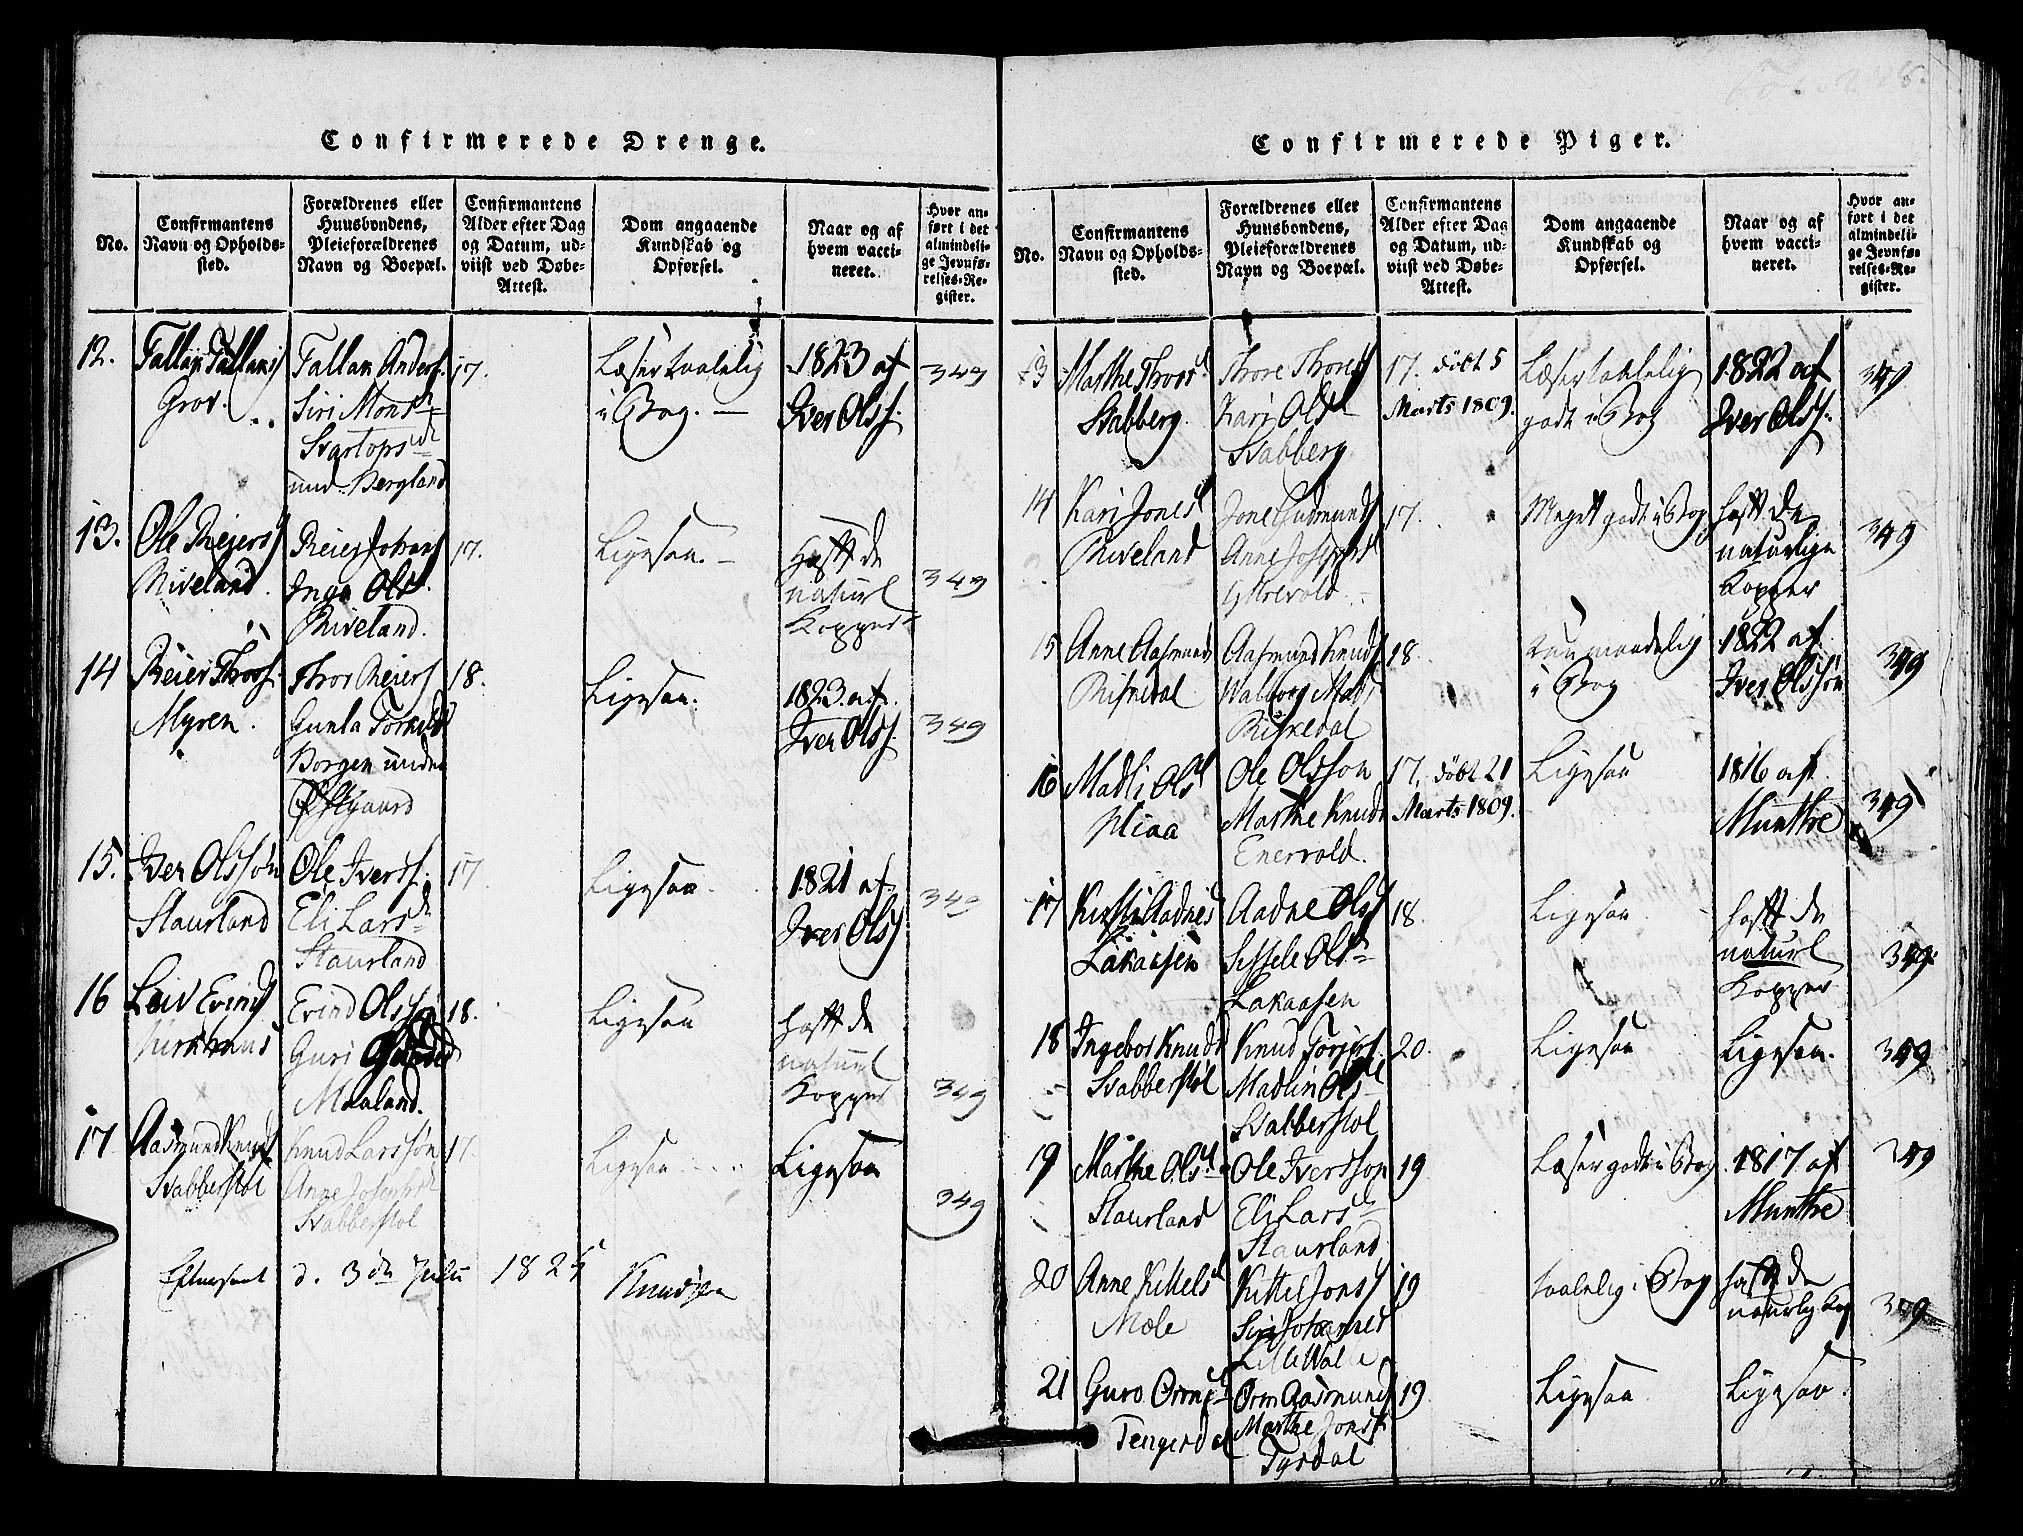 Confirmerede Drenge.
No.
Confirmantens
Navn og Opholds-
sted.
Forældrenes eller
Huusbondens,
Pleieforældrenes
Navn og Boepæl.
Confirmantens
Alder efter Dag
og Datum, ud-
viist ved Døbe-
Attest.
Dom angaaende
Kundskab og
Opførsel.
Naar og af
hvem vacci-
neret.
Hvor an-
ført i det
almindeli-
ge Jevnfø-
relses-Re-
gister.
12.
Grov.
Tallan Anders.
Siri Mons
und. Bergland
17.
Læser taalelig
i Bog.
1823 af
Iver Olss.
349
13.
Ole Reiers
Riveland.
Inga Ols
Riveland.
17.
Ligesaa.
Hafft de
naturl
Kopper
349
14
Reier Thors.
Myren.
Thor Reiers
Gunla
Borgen under
18.
Ligesaa.
1823 af
Iver Olss.
349
15.
Iver Olssøn
Staurland
Ole Iverss.
Eli Lars
Staurland
17
Ligesaa.
1821 af
Iver Olss
349
16
Leiv Evinds
Evind Olss
Guri
Maaland.
18.
Ligesaa
hafft de
naturl
Kopper
349
17
Aasmund Knuds
Svabberstøl
Knud Larssøn
Anne Josephs
Svabberstøl
17.
Ligesaa
Ligesaa
349
d. 3 Juli 1825
Knudsen
Confirmerede Piger.
No.
Confirmantens
Navn og Opholds-
sted.
Forældrenes eller
Huusbondens,
Pleieforældrenes
Navn og Boepæl.
Confirmantens
Alder efter Dag
og Datum, ud-
viist ved Døbe-
Attest.
Dom angaaende
Kundskab og
Opførsel.
Naar og af
hvem vacci-
neret.
Hvor an-
ført i det
almindeli-
ge Jevnfø-
relses-Re-
gister.
13
Marthe Thors
Svabberg.
Thore Thores
Kari Ols
Svabberg
17. Født 5
Marts 1809.
Læser taalelig
godt i Bog
1822 af
Iver Olss.
349
14
Kari Jones
Riveland
Jone Gudmunds
Anne Josephs
17.
Meget godt i Bog
hafft de
naturlige
Kopper
349
15
Anne Aasmunds
Risnedal
Aasmund Knuds
Walborg
Risnedal
18.
i Bog
1822 af
Iver Olssøn
349
16
Madli Ols
Ole Olsson
Marthe Knuds
Enervold.
17. Født 21
Marts 1809.
Ligesaa
1816 af
Munthe
349
17
Kirsti Aadnes
Lakaasen
Aadne Olss
Sissele Ols
Lakaasen
18.
Ligesaa
hafft de
naturl
Kopper
349
18
Ingebor Knuds
Svabberstøl
Knud Torjers.
Madlin Ols
Svabberstøl
20.
Ligesaa
Ligesaa.
349
19
Marthe Ols
Staurland
Ole Iversson
Eli Lars
Staurland
19
Læser godt i Bog
1817 af
Munthe
349
20
Anne Kittels
Mæle
Kittel Jonss
Siri Johannes
19
taalelig i Bog
hafft de
naturlig Kop
349
21
Guro Orms
Tengesdal
Orm Aasmunds
Marthe Jons
19
Ligesaa
Ligesaa